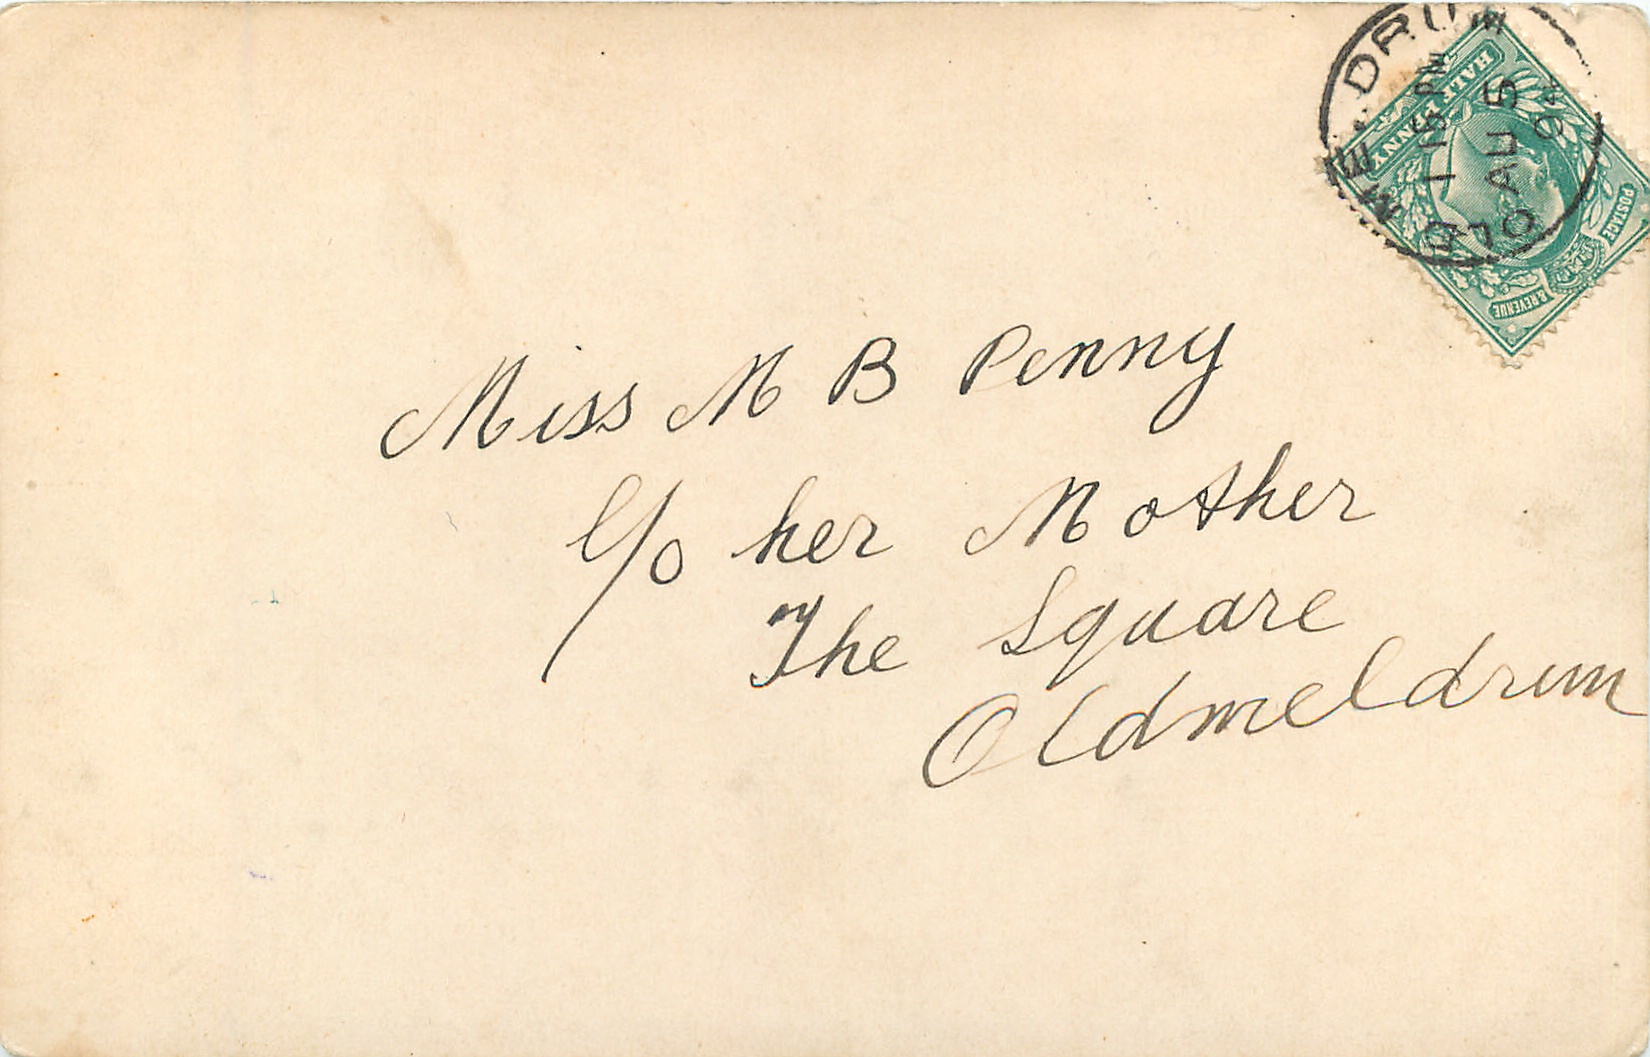 OLD MELDRUM
1 15 PM
AU 5
04
HALF PENNY
POSTAGE
& REVENUE
Miss M B Penny
C/o her Mother
The Square
Oldmeldrum